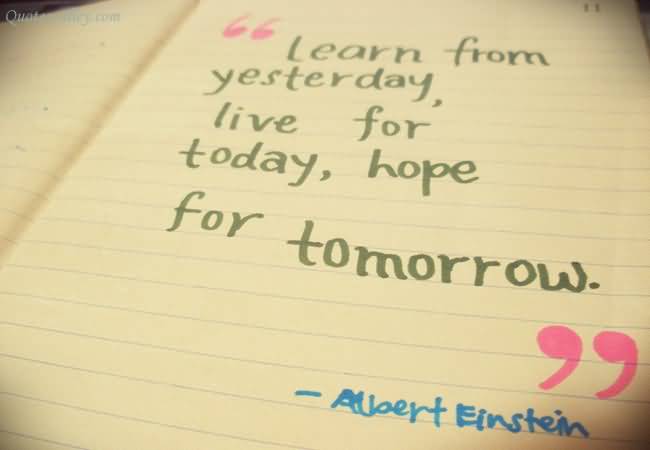 “ learn from
yesterday,
live for
today, hope
for tomorrow.
”
- Albert Einstein